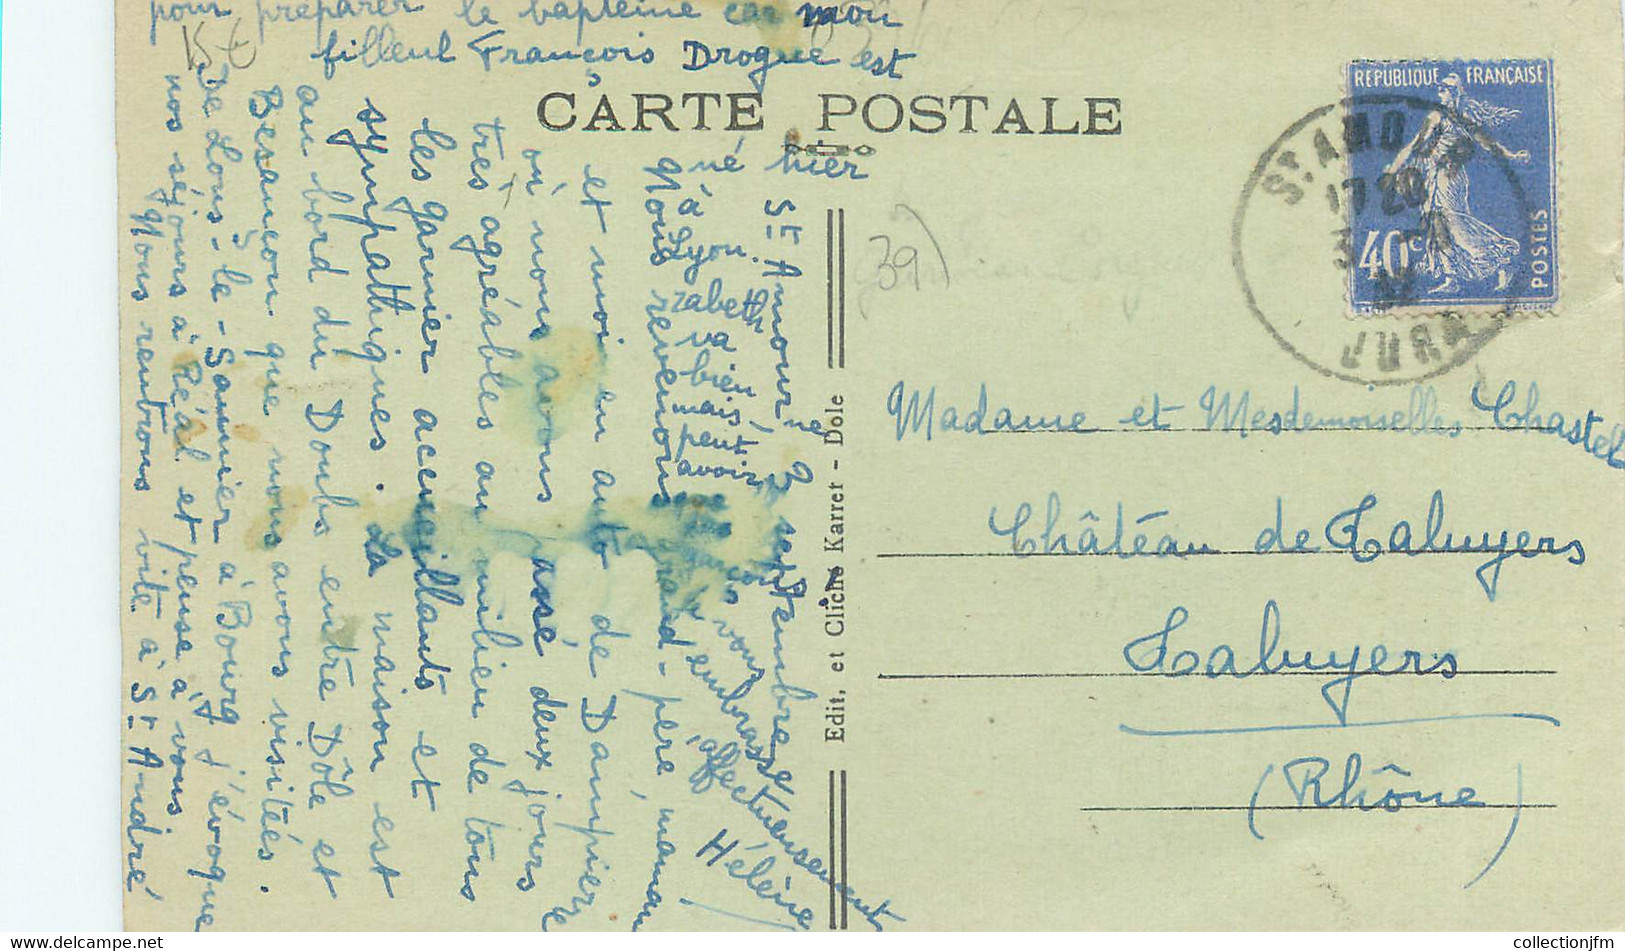 CARTE POSTALE
St Amour 3 septembre
Nous revenons grand-père, maman
et moi en auto de Dampierre
où nous avons passé deux jours
très agréables au milieu de tous
les garnier accueillants et
sympathiques. La maison est
au bord du Doubs entre Dôle et
Besançon que nous avons visités.
De Lons-le-Saunier à Bourg j'évoque
nos séjours à Réal et pense à vous.
Nous rentrons vite à St André
pour préparer le baptême car mon
filleul François Drogue est
né hier
à
Lyon.
Elyzabeth
va
bien
mais
peut
avoir
vous
embrasse
affectueusement
Hélène
Edit, et Cliché Karret - Dole
(39)
REPUBLIQUE FRANÇAISE
40c
POSTES
ST. AMOUR
17 20
JURA
Madame et Mesdemoiselles Chastel
Château de Taluyers
Taluyers
(Rhône)
collectionjfm